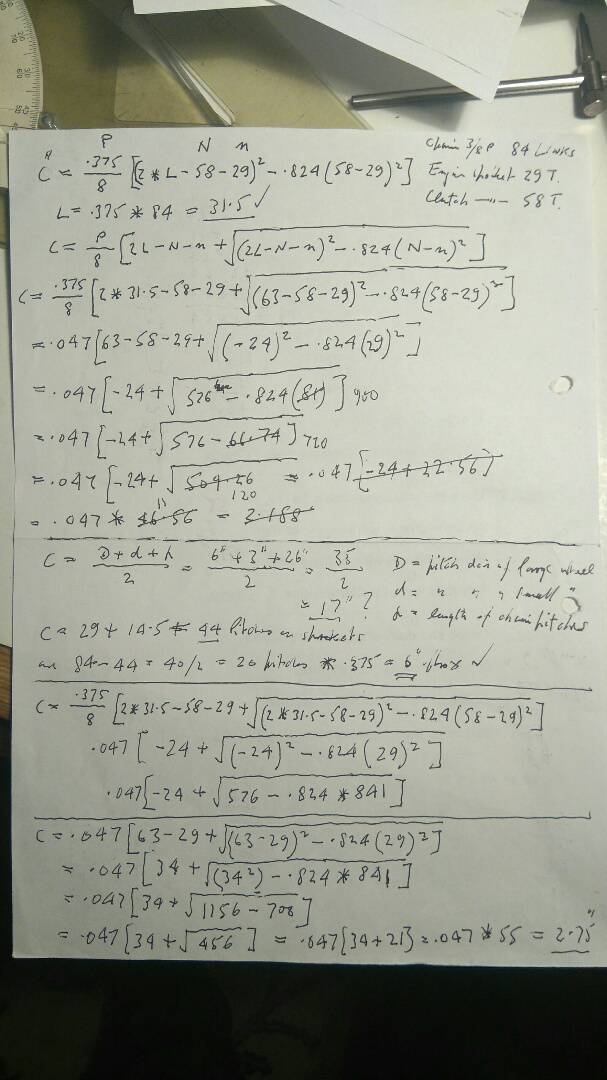 P N n
C" = .375/8 [(2 * L - 58 - 29)² - .824 (58-29)²]
Chain 3/8 P 84 LINKS
Engin sprocket 29 T.
Clutch —"— 58 T.
L = .375 * 84 = 31.5 ✓
C = P/8 [2L - N - n + √(2L-N-n)² - .824 (N-n)²]
C = .375/8 [2 * 31.5 - 58 - 29 + √(63-58-29)² - .824 (58-29)²]
= .047 [63 - 58 - 29 + √(-24)² - .824 (29)²]
= .047 [-24 + √576 - .824 (81)] 900
= .047 [-24 + √576 - 66.74] 720
= .047 [-24 + √504.56 = .047 [-24 + 22.56]
120
= .047 * 46.56 = 2.188
C = D + d + h / 2 = 6" + 3" + 26" / 2 = 35/2
= 17" ?
D = pitch dia of large wheel
d = " " " small "
h = length of chain pitches
C = 29 + 14.5 = 44 Pitches on sprockets
84 - 44 = 40/2 = 20 pitches * .375 = 6" ✓
C = .375/8 [2 * 31.5 - 58 - 29 + √(2 * 31.5 - 58 - 29)² - .824 (58-29)²]
.047 [-24 + √(-24)² - .824 (29)²]
.047 [-24 + √576 - .824 * 841]
C = .047 [63 - 29 + √(63-29)² - .824 (29)²]
= .047 [34 + √(34²) - .824 * 841]
= .047 [34 + √1156 - 700]
= .047 [34 + √456] = .047 [34 + 21] = .047 * 55 = 2.75"